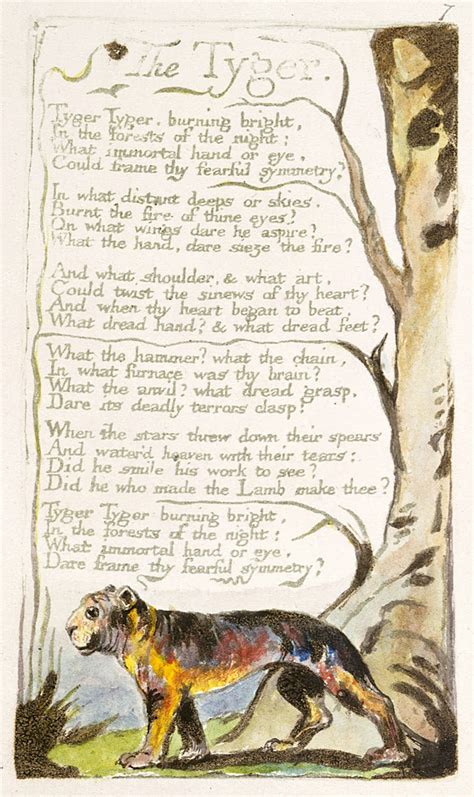 7
The Tyger.
Tyger Tyger, burning bright,
In the forests of the night:
What immortal hand or eye,
Could frame thy fearful symmetry?
In what distant deeps or skies,
Burnt the fire of thine eyes?
On what wings dare he aspire?
What the hand, dare sieze the fire?
And what shoulder, & what art,
Could twist the sinews of thy heart?
And when thy heart began to beat,
What dread hand? & what dread feet?
What the hammer? what the chain,
In what furnace was thy brain?
What the anvil? what dread grasp,
Dare its deadly terrors clasp?
When the stars threw down their spears
And water'd heaven with their tears:
Did he smile his work to see?
Did he who made the Lamb make thee?
Tyger Tyger burning bright,
In the forests of the night:
What immortal hand or eye,
Dare frame thy fearful symmetry?